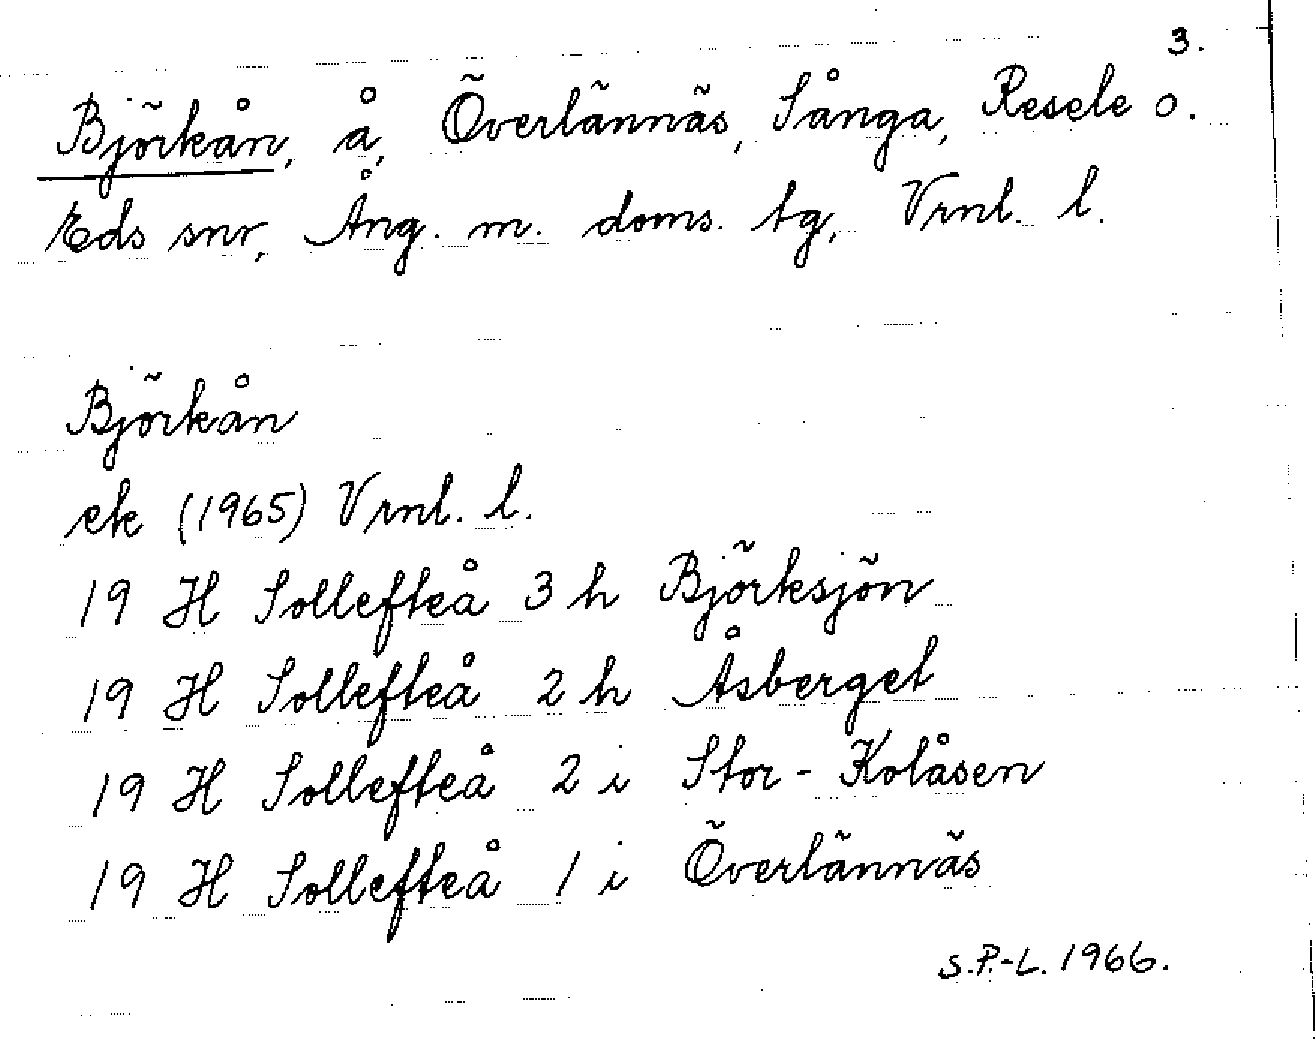 3.
Björkån, å, Överlännäs, Sånga, Resele o.
Eds snr, Ång. m. doms. tg, Vrnl. l.
Björkån
ek (1965) Vrnl. l.
19 H Sollefteå 3 h Björksjön
19 H Sollefteå 2 h Åsberget
19 H Sollefteå 2 i Stor-Kolåsen
19 H Sollefteå 1 i Överlännäs
S.P.-L. 1966.